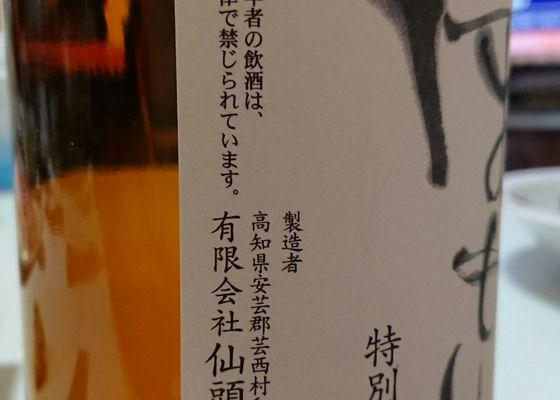 特別
製造者
高知県安芸郡芸西村
有限会社仙頭
年者の飲酒は、
律で禁じられています。